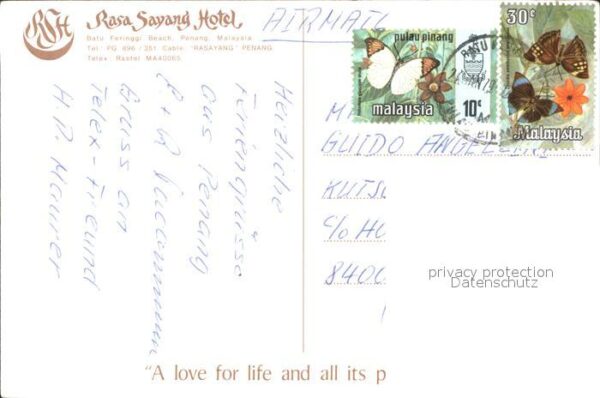 RSH
Rasa Sayang Hotel
Batu Feringgi Beach, Penang, Malaysia
Tel: PG 896 / 251 Cable: "RASAYANG" PENANG
Telex: Rastel MA40065
AIRMAIL
pulau pinang
malaysia
10c
30c
Malaysia
Herzliche
Feriengrüsse
aus Penang
Gruss an
Telex-Freund
H.P. Maurer
GUIDO
C/O
8400
privacy protection
Datenschutz
"A love for life and all its p